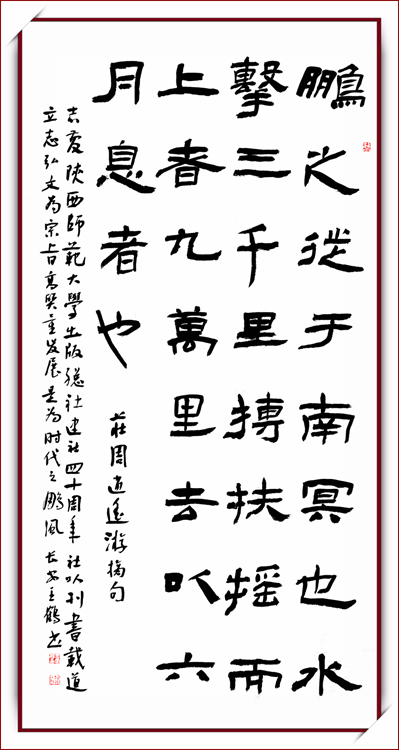 鵬之徙于南冥也水
擊三千里摶扶搖而
上者九萬里去以六
月息者也
莊周逍遙游摘句
吉慶陝西師範大學出版總社建社四十周年 社以刊書載道
立志弘文为宗旨高質量发展是为时代之鵬風 长安王鶴书